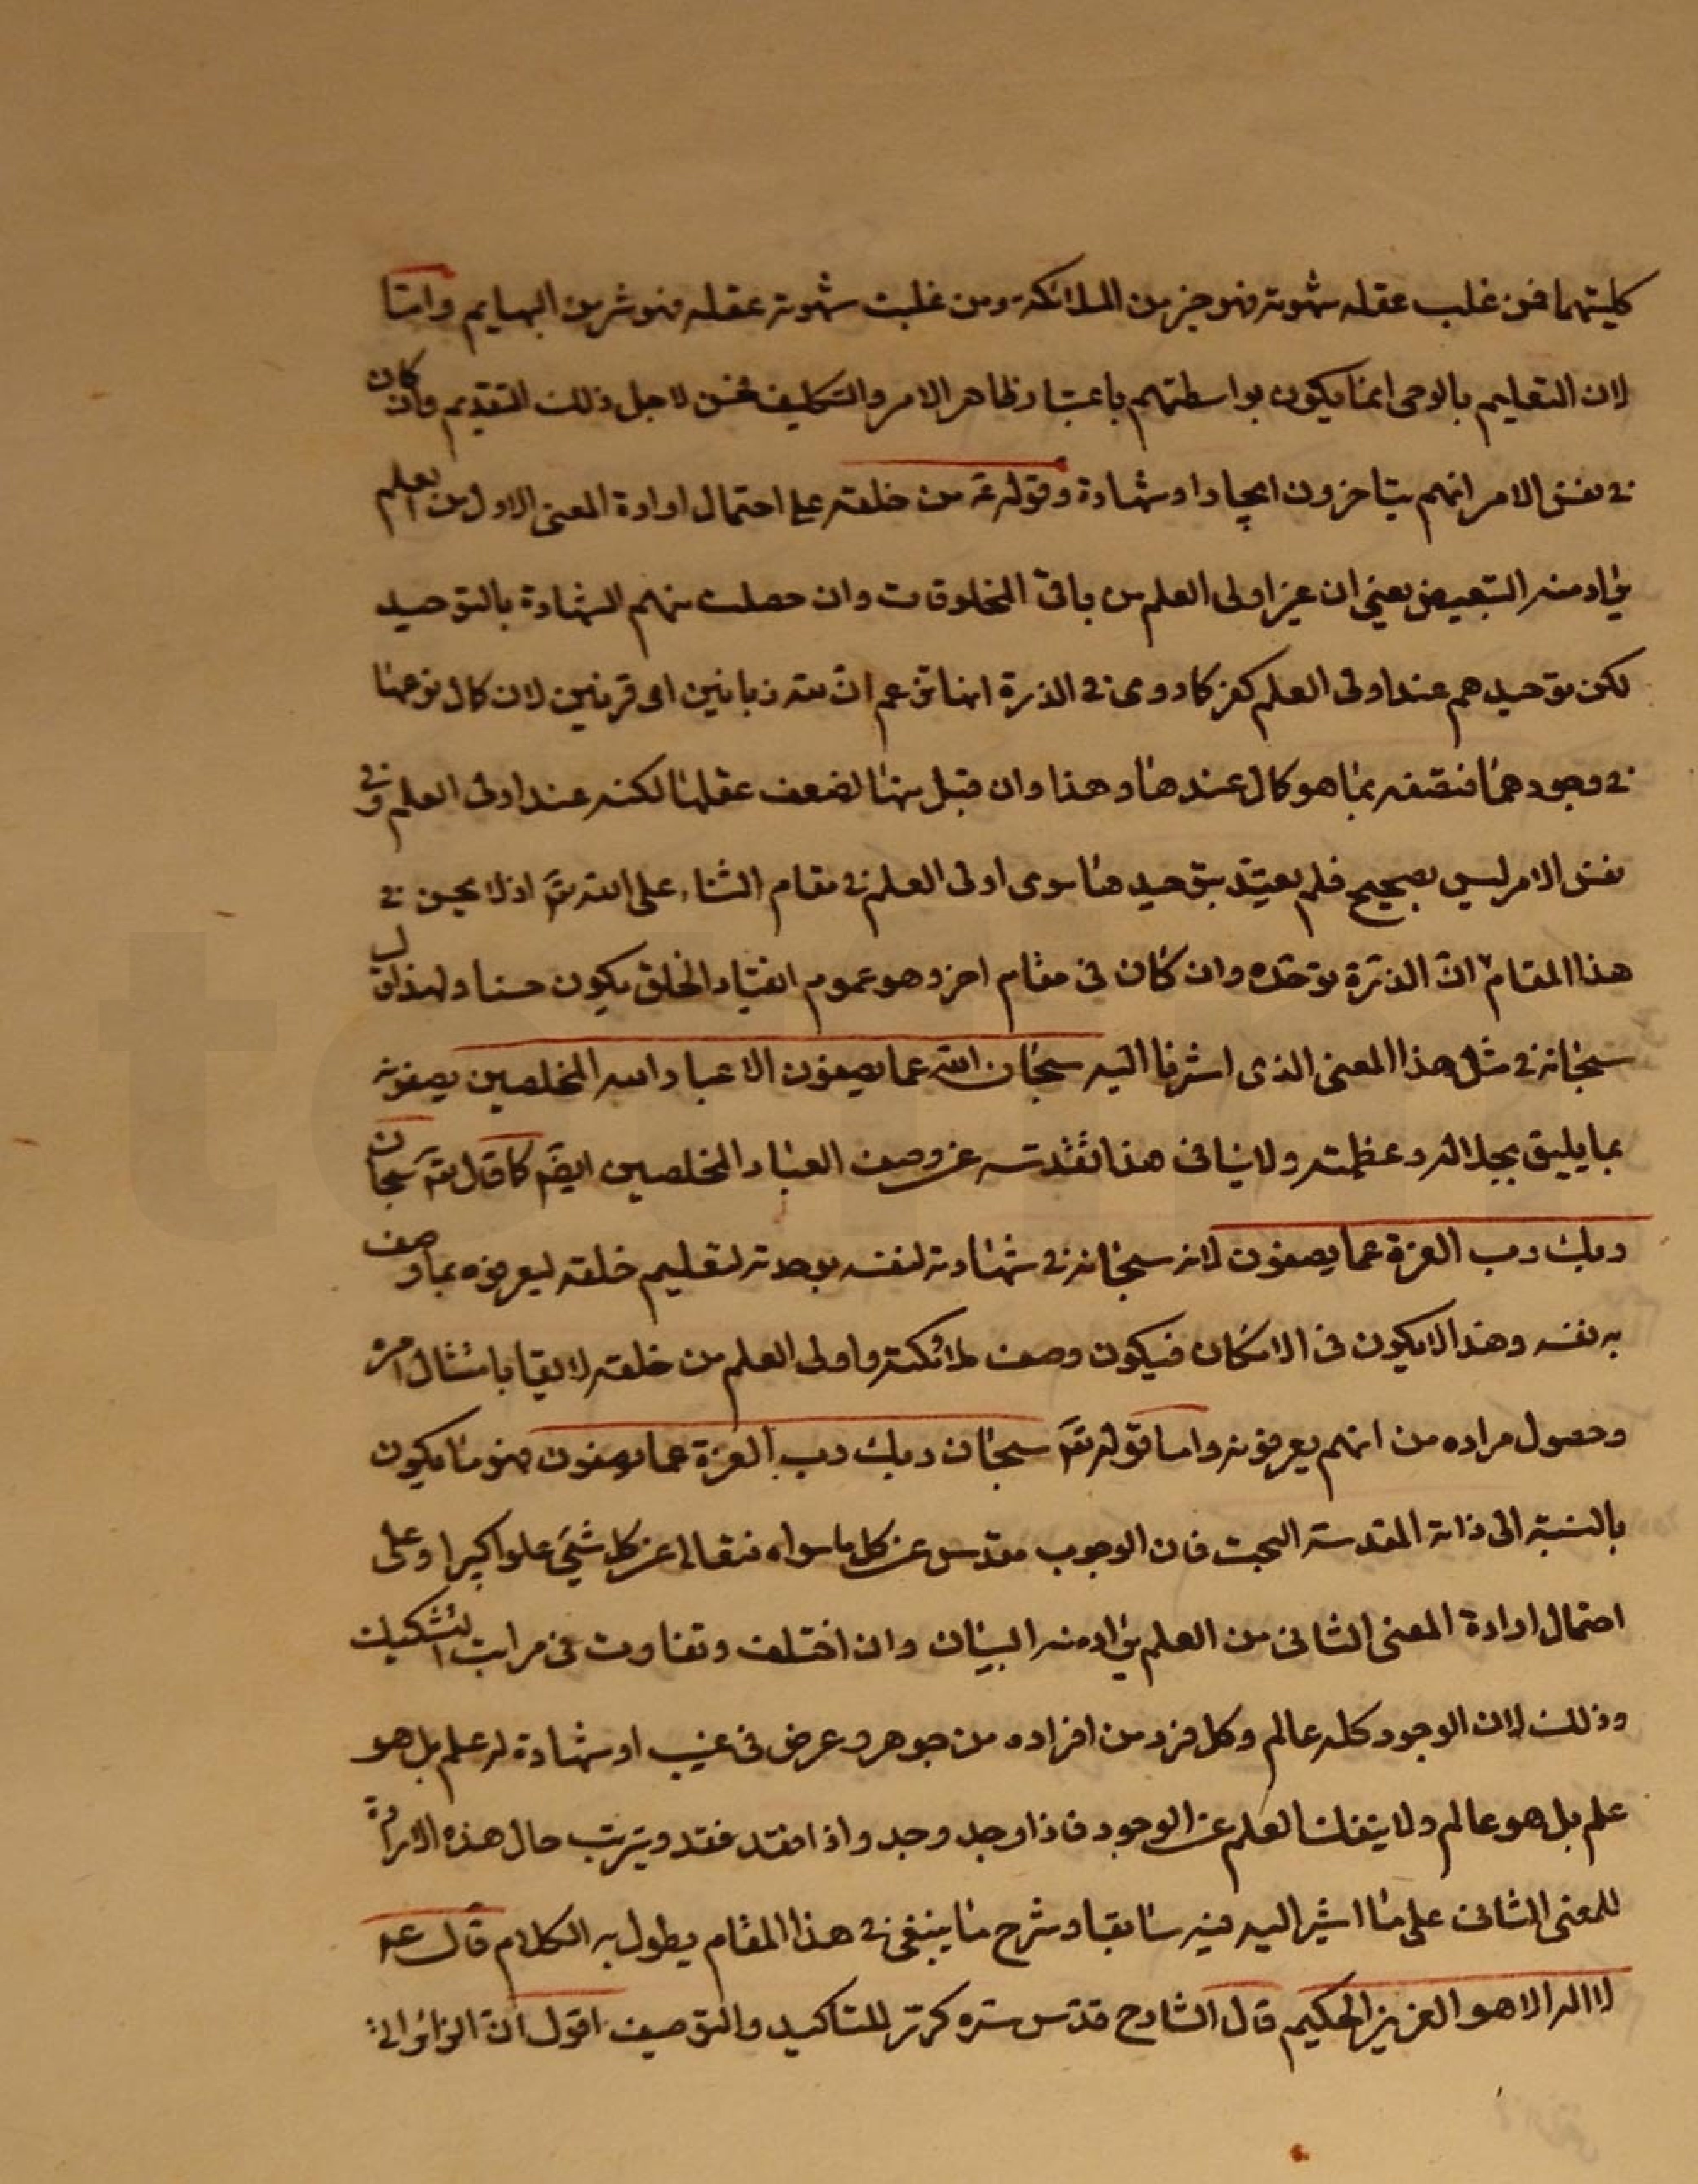 كليتهما فمن غلب عقله شهوته فهو خير من الملائكة ومن غلبت شهوته عقله فهو شر من البهايم واما
لان التعليم بالوحى انما يكون بواسطتهم باعتبار ظاهر الامر والتكليف فحسن لاجل ذلك التقديم وان كان
فى نفس الامر انهم يتاخرون ايجادا وشهادة وقوله ع من خلقه على احتمال ارادة المعنى الاول من العلم
يراد منه التبعيض يعنى ان غير اولى العلم من باقى المخلوقات وان حصلت منهم الشهادة بالتوحيد
لكن توحيدهم عند اولى العلم كفر كما روى فى الذرة انها تزعم ان لله زبانين اى قرنين لان كمال نوعها
فى وجودهما فتصفه بما هو كمال عندها وهذا وان قبل منها لضعف عقلها لكنه عند اولى العلم وفى
نفس الامر ليس بصحيح فلم يعتد بتوحيد ما سوى اولى العلم فى مقام الثناء على الله تعَ اذ لا يحسن فى
هذا المقام ان الذرة توحده وان كان فى مقام اخر وهو عموم انقياد الخلق يكون حسنا ولهذا قال
سبحانه فى مثل هذا المعنى الذى اشرنا اليه سبحان الله عما يصفون الا عباد الله المخلصين يصفونه
بما يليق بجلاله وعظمته ولا ينافى هذا تقدسه عن وصف العباد المخلصين ايضَ كما قال تعَ سبحان
ربك رب العزة عما يصفون لانه سبحانه فى شهادته لنفسه بوحدته لتعليم خلقه ليعرفوه بما وصف
به نفسه وهذا لا يكون فى الامكان فيكون وصف ملائكته واولى العلم من خلقه لايقا بامتثال امره
وحصول مراده من انهم يعرفونه واما قوله تعَ سبحان ربك رب العزة عما يصفون فهو ما يكون
بالنسبة الى ذاته المقدسة البحت فان الوجوب مقدس عن كل ما سواه فتعالى عن كل شىء علوا كبيرا وعلى
احتمال ارادة المعنى الثانى من العلم يراد منه البيان وان اختلف وتفاوت فى مراتب التشكيك
وذلك لان الوجود كله عالم وكل فرد من افراده من جوهر وعرض فى غيب او شهادة له علم بل هو
علم بل هو عالم ولا ينفك العلم عن الوجود فاذا وجد وجد واذا فقد فقد ويترتب حال هذه الارادة
للمعنى الثانى على ما اشير اليه فيه سابقا وشرح ما ينبغى فى هذا المقام يطول به الكلام قال ع
لا اله الا هو العزيز الحكيم قال الشارح قدس سره كرر للتاكيد والتوصيف اقول ان